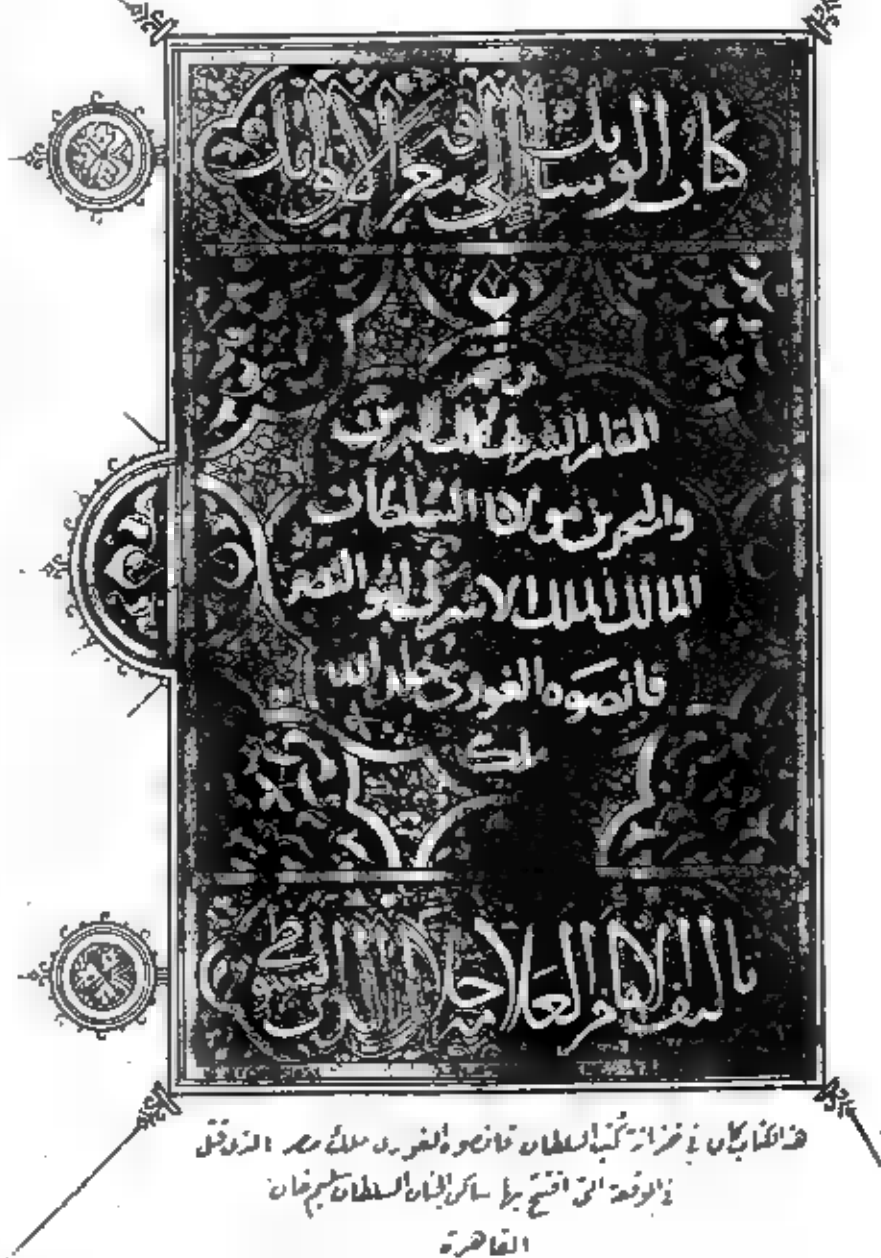 كتاب الوسايل الى معرفة الاوايل
برسم
المقام الشريف مالك البرين
والبحرين مولانا السلطان
المالك الملك الاشرف ابو النصر
قانصوه الغوري خلد الله
ملكه
تاليف الامام العلامة جلال الدين السيوطي
هذا الكتاب كان في خزانة كتب السلطان قانصوه الغوري ملك مصر الذي قتل
في الوقعة التي افتتح بها ساكن الجنان السلطان سليم خان
القاهرة